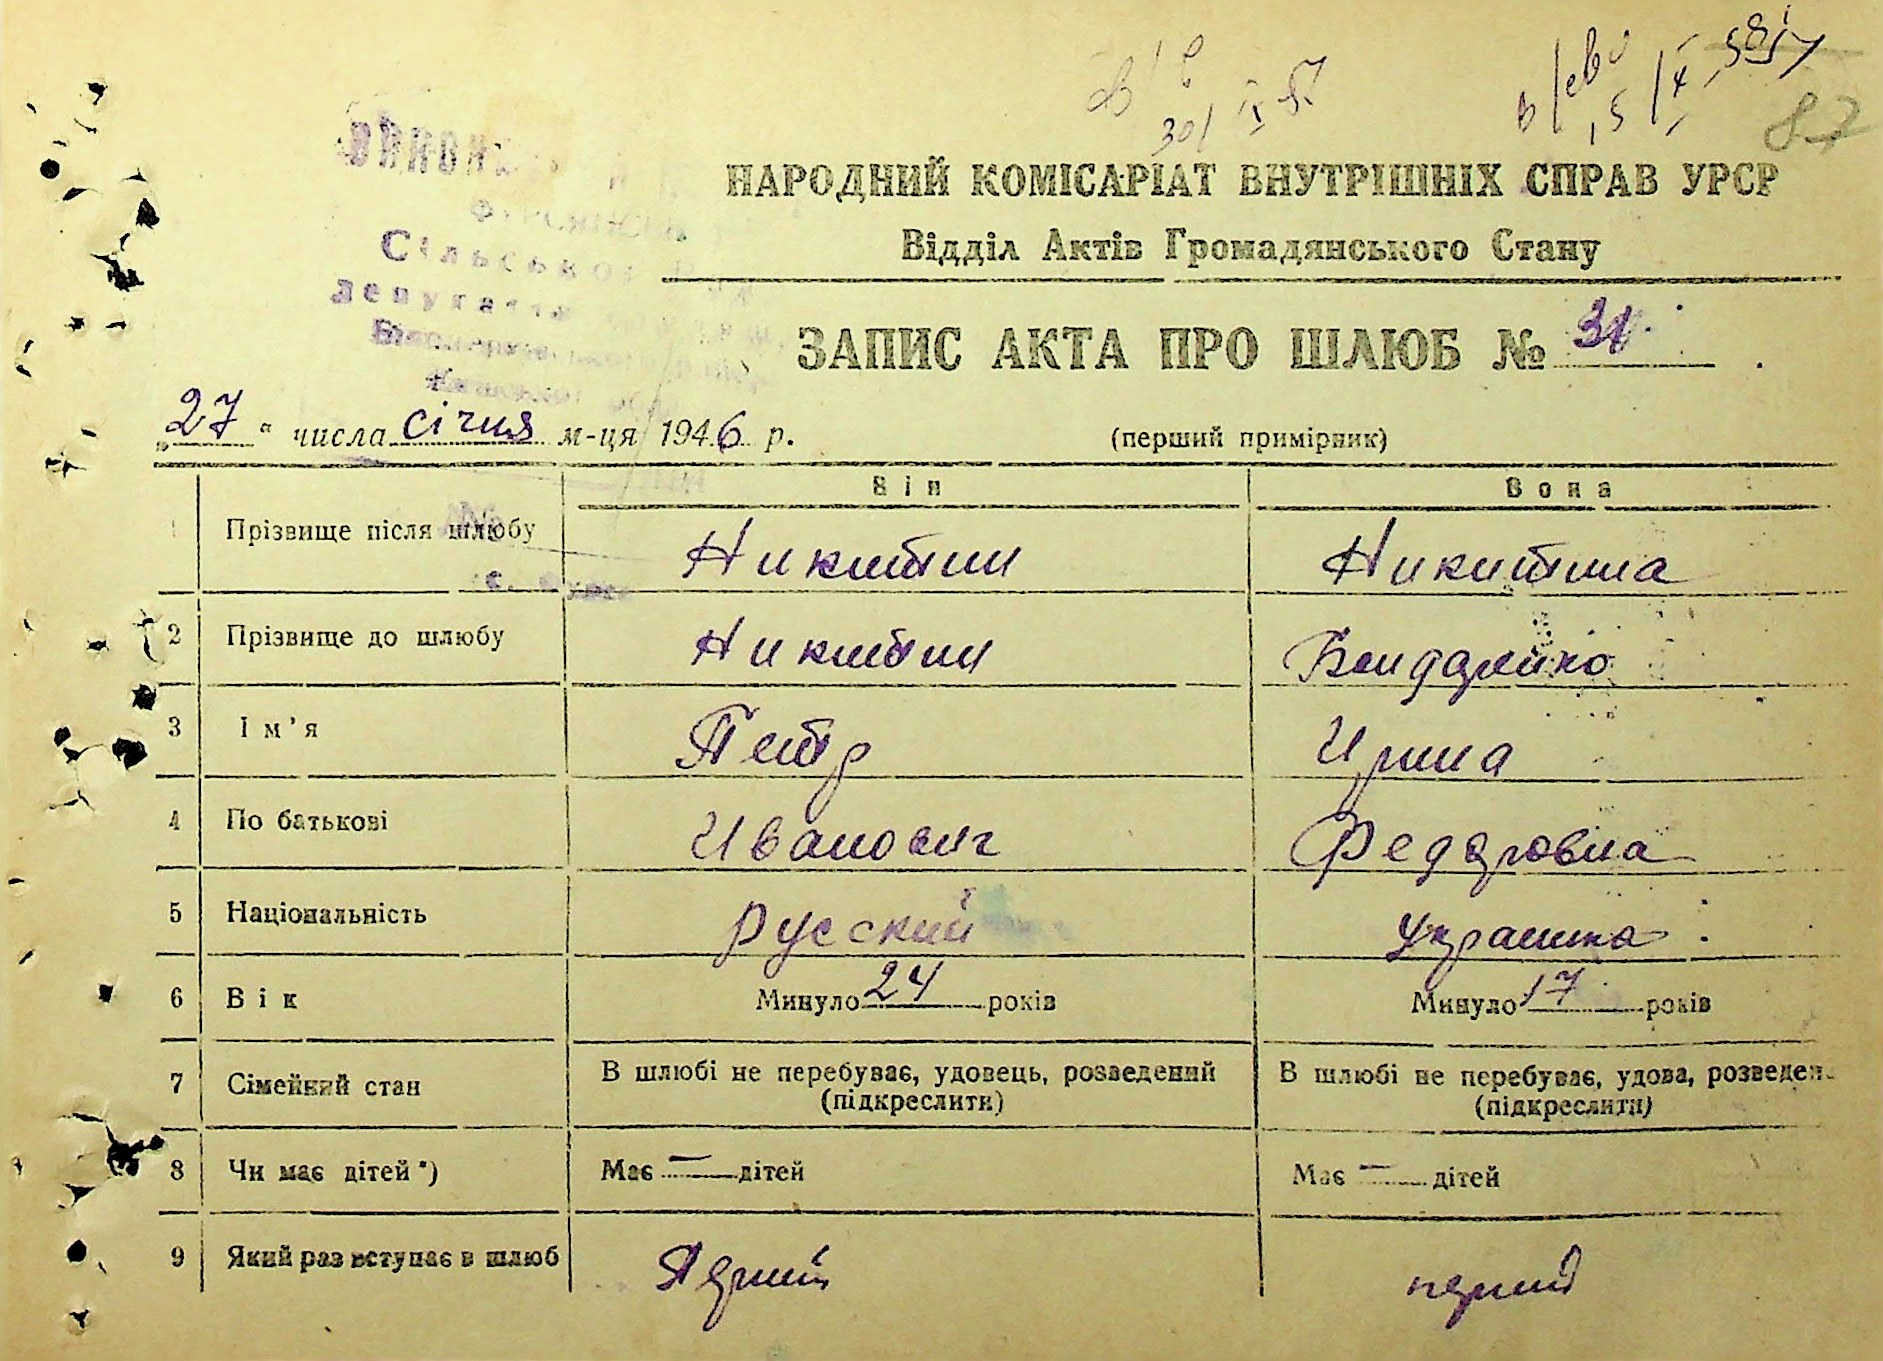 87
НАРОДНИЙ КОМІСАРІАТ ВНУТРІШНІХ СПРАВ УРСР
Відділ Актів Громадянського Стану
Сільської
Депутатів
ЗАПИС АКТА ПРО ШЛЮБ № 31
„27“ числа січня м-ця 1946 р.
(перший примірник)
Він Вона
1 Прізвище після шлюбу Никитин Никитина
2 Прізвище до шлюбу Никитин
3 Ім’я Петр Ирина
4 По батькові Иванович Федоровна
5 Національність Русский Украинка
6 Вік Минуло 24 років Минуло 17 років
7 Сімейний стан В шлюбі не перебуває, удовець, розведений (підкреслити) В шлюбі не перебуває, удова, розведен (підкреслити)
8 Чи має дітей *) Має — дітей Має — дітей
9 Який раз вступає в шлюб Перший перший